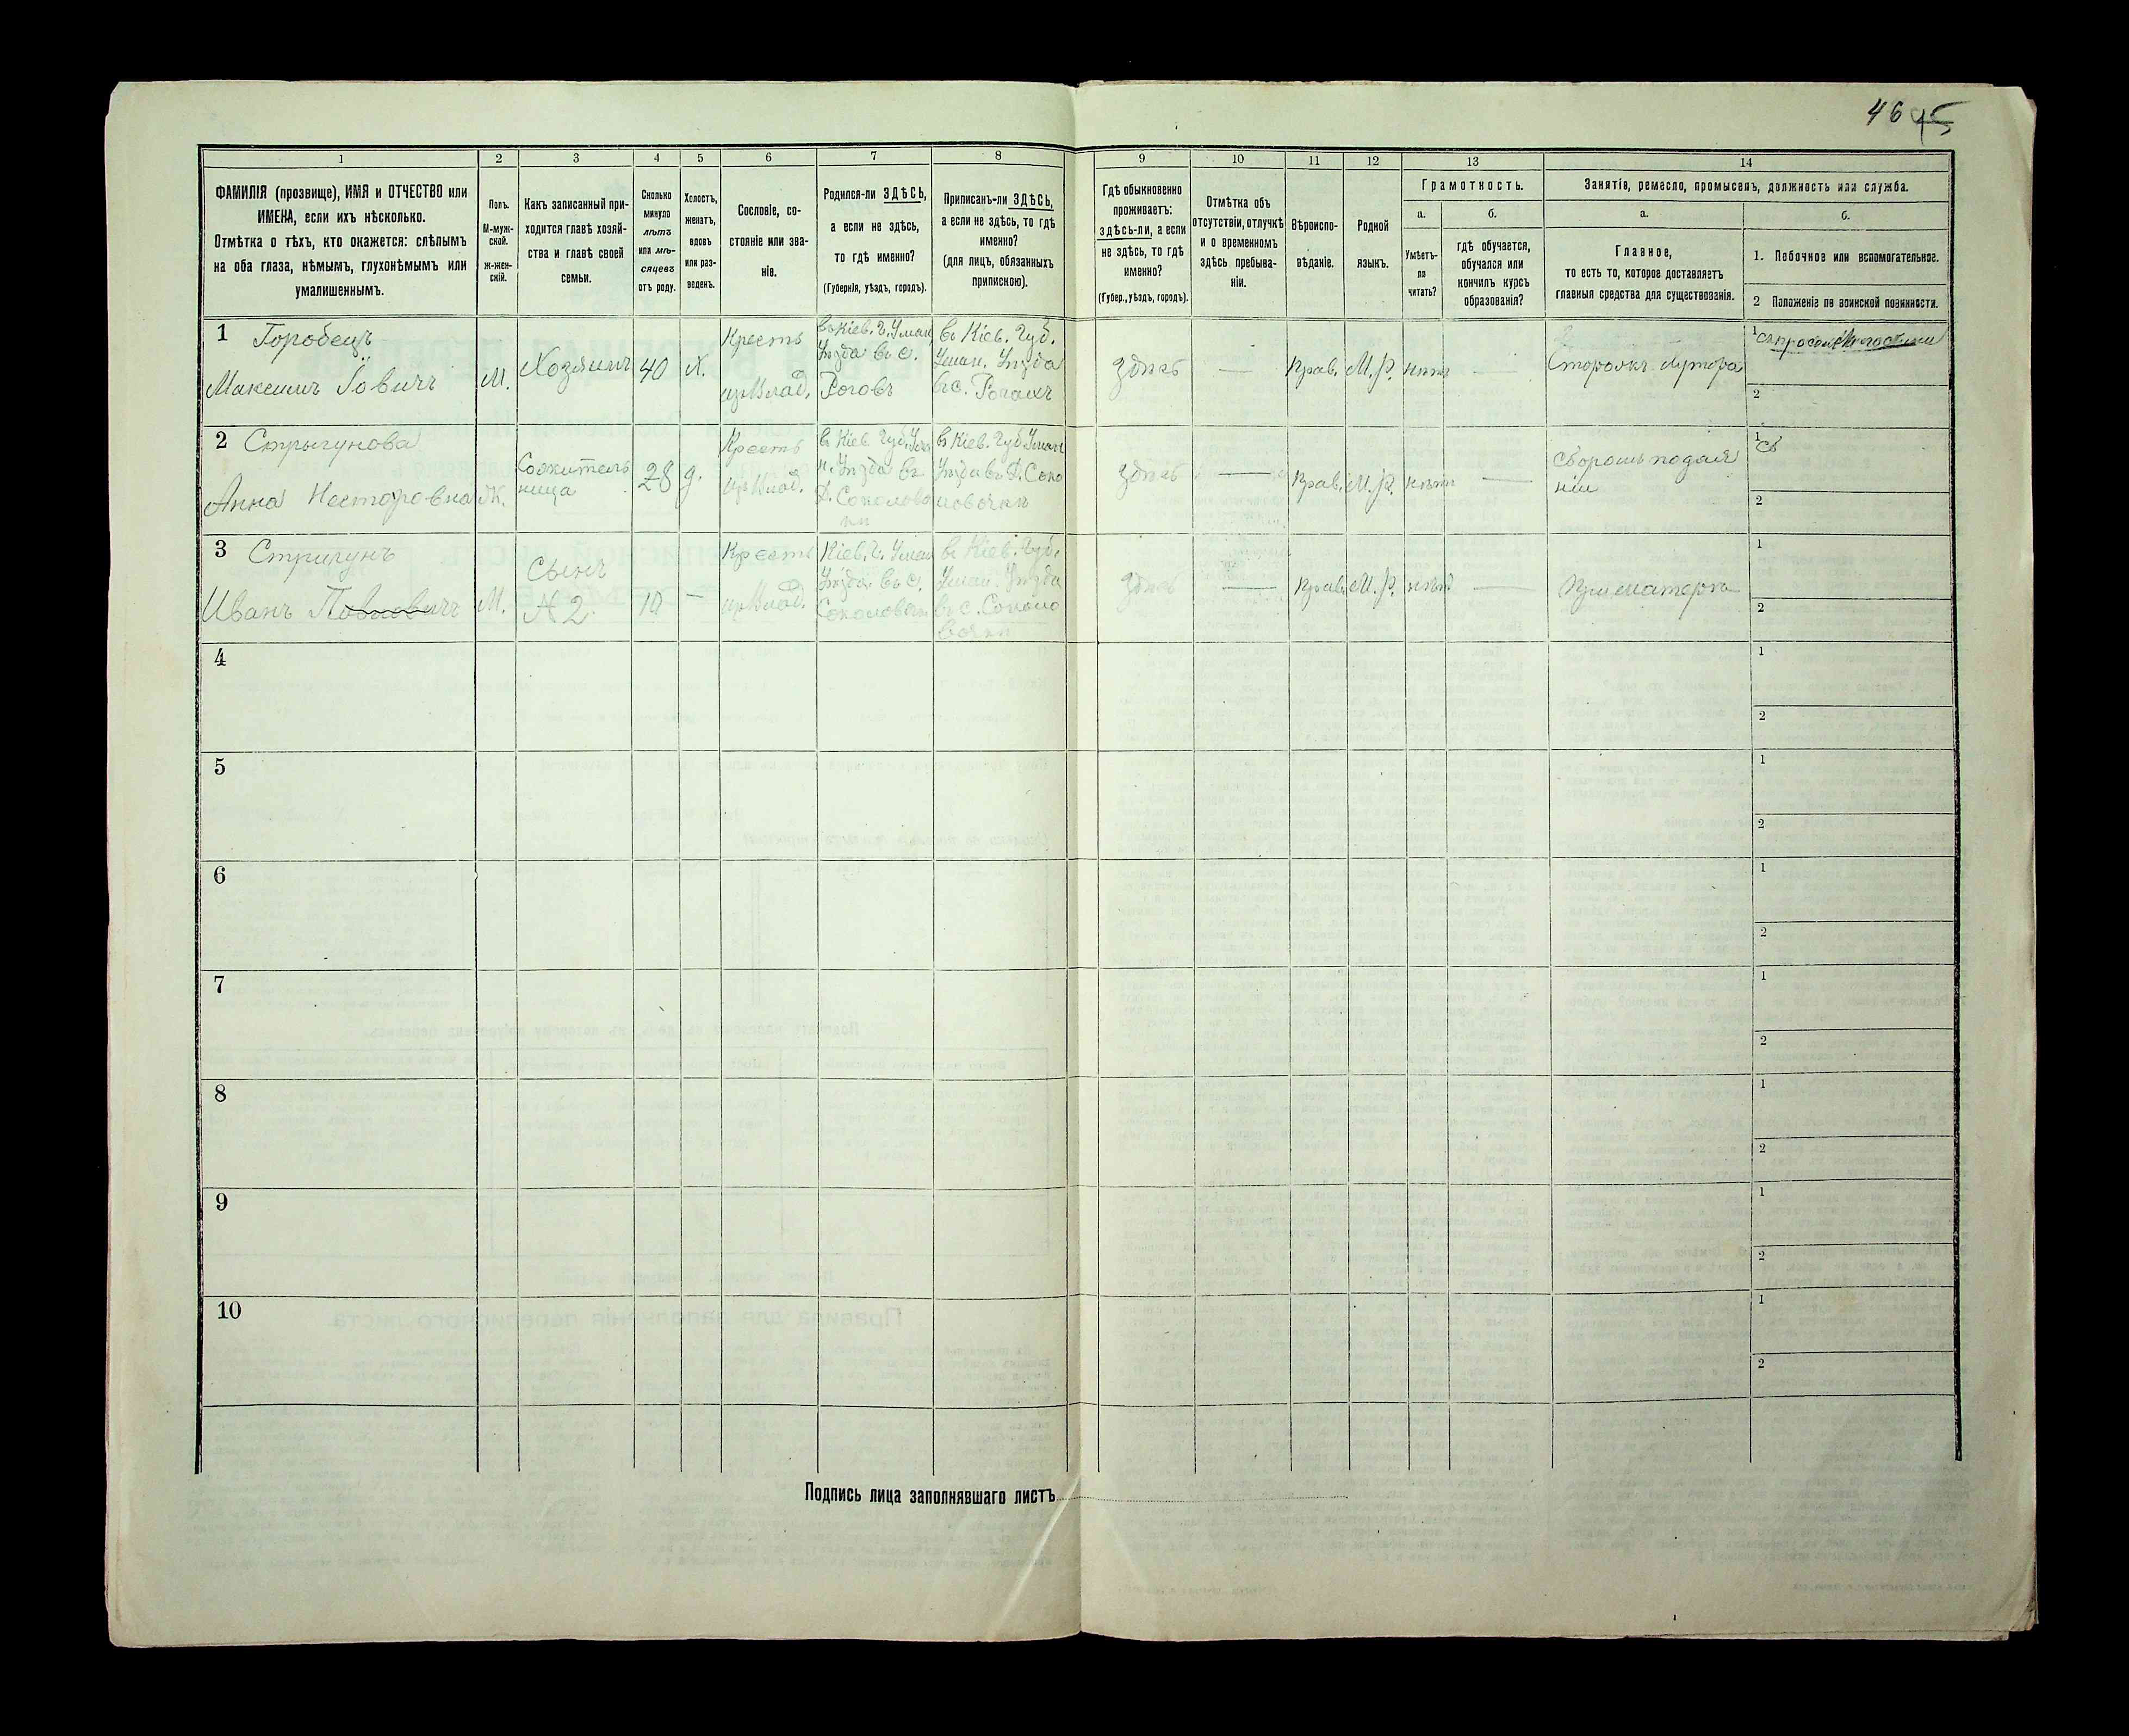 46 45
1
2
3
4
5
6
7
8
9
10
11
12
13
14
ФАМИЛІЯ (прозвище), ИМЯ и ОТЧЕСТВО или
ИМЕНА, если ихъ нѣсколько.
Отмѣтка о тѣхъ, кто окажется: слѣпымъ
на оба глаза, нѣмымъ, глухонѣмымъ или
умалишеннымъ.
Полъ.
М-муж-
ской.
ж-жен-
скій.
Какъ записанный при-
ходится главѣ хозяй-
ства и главѣ своей
семьи.
Сколько
минуло
лѣтъ
или мѣ-
сяцевъ
отъ роду.
Холостъ,
женатъ,
вдовъ
или раз-
веденъ.
Сословіе, со-
стояніе или зва-
ніе.
Родился-ли ЗДѢСЬ,
а если не здѣсь,
то гдѣ именно?
(Губернія, уѣздъ, городъ).
Приписанъ-ли ЗДѢСЬ,
а если не здѣсь, то гдѣ
именно?
(для лицъ, обязанныхъ
припискою).
Гдѣ обыкновенно
проживаетъ:
здѣсь-ли, а если
не здѣсь, то гдѣ
именно?
(Губер., уѣздъ, городъ).
Отмѣтка объ
отсутствіи, отлучкѣ
и о временномъ
здѣсь пребыва-
ніи.
Вѣроиспо-
вѣданіе.
Родной
языкъ.
Грамотность.
а.
Умѣетъ-
ли
читать?
б.
гдѣ обучается,
обучался или
кончилъ курсъ
образованія?
Занятіе, ремесло, промыселъ, должность или служба.
а.
Главное,
то есть то, которое доставляетъ
главныя средства для существованія.
б.
1. Побочное или вспомогательное.
2 Положеніе по воинской повинности.
1 Горобецъ
Максимъ Іовичъ
М.
Хозяинъ
40
Х.
Крестъ
изъ Влад.
въ Кіев. г. Уман
Уѣзда въ с.
Роговъ
въ Кіев. Губ.
Уман. Уѣзда
въ с. Рогахъ
здѣсь
—
Прав.
М.р.
нѣтъ
—
Сторожъ хутора
1
2
2 Стрыгунова
Анна Несторовна
Ж.
Сожитель
ница
28
д.
Крестъ
изъ Влад.
въ Кіев Губ. Ума
н. Уѣзда въ
Д. Соколово
ки
въ Кіев. Губ Уман
Уѣзда въ Д. Соко
ловочки
здѣсь
—
Прав.
М.р.
нѣтъ
—
Сборомъ подая
ній
1 Сѣ
2
3 Стригунъ
Иванъ
М.
Сынъ
№ 2.
10
—
Крестъ
изъ Влад.
Кіев. г. Уман
Уѣзда. въ с.
въ Кіев. Губ.
Уман. Уѣзда
въ с. Соколо
вочки
здѣсь
—
Прав.
М.р.
нѣтъ
—
При матери
1
2
4
1
2
5
1
2
6
1
2
7
1
2
8
1
2
9
1
2
10
1
2
Подпись лица заполнявшаго листъ